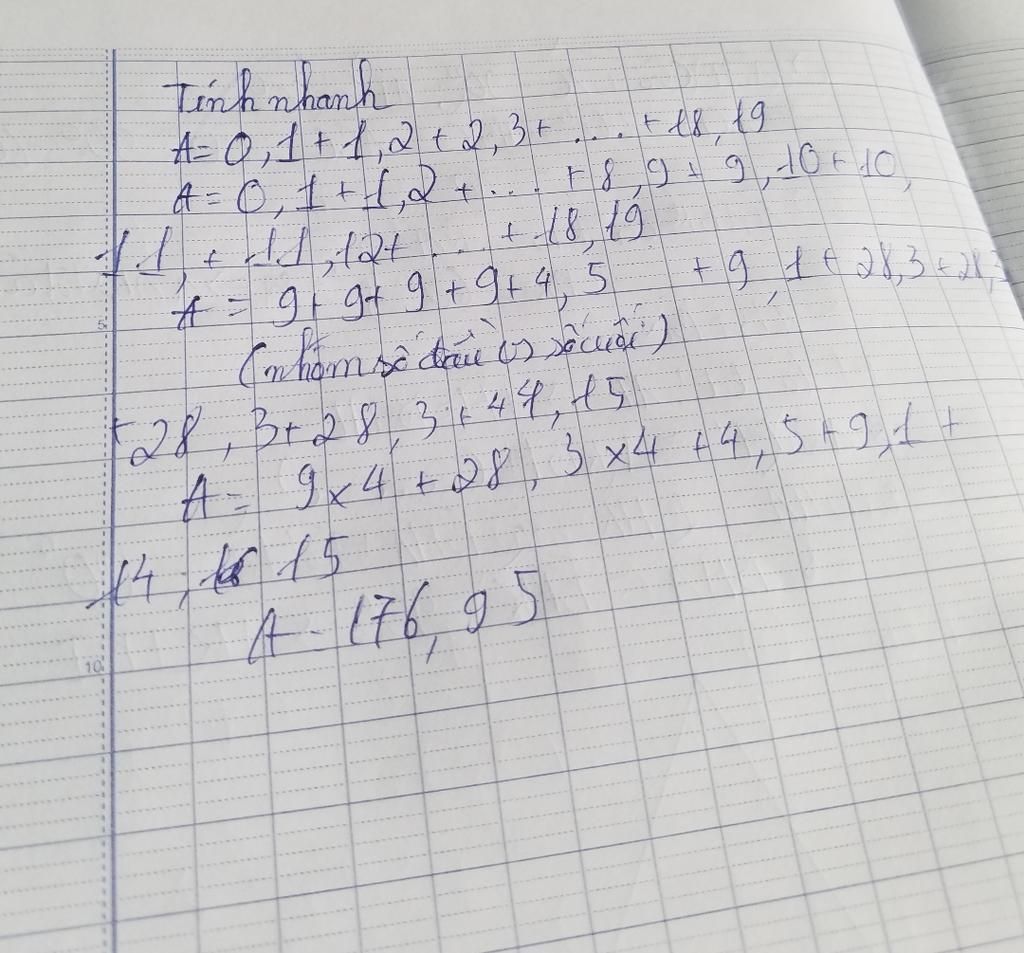 Tính nhanh
A = 0,1 + 1,2 + 2,3 + .... + 18,19
A = 0,1 + 1,2 + ... + 8,9 + 9,10 + 10,
11, + 11,12 + ... + 18,19
A = 9 + 9 + 9 + 9 + 4,5 + 9,1 + 28,3 + 28,3
(nhóm số đầu số cuối)
+ 28,3 + 28,3 + 44,15
A = 9 x 4 + 28,3 x 4 + 4,5 + 9,1 +
14, 15
A = 176,95
5
10